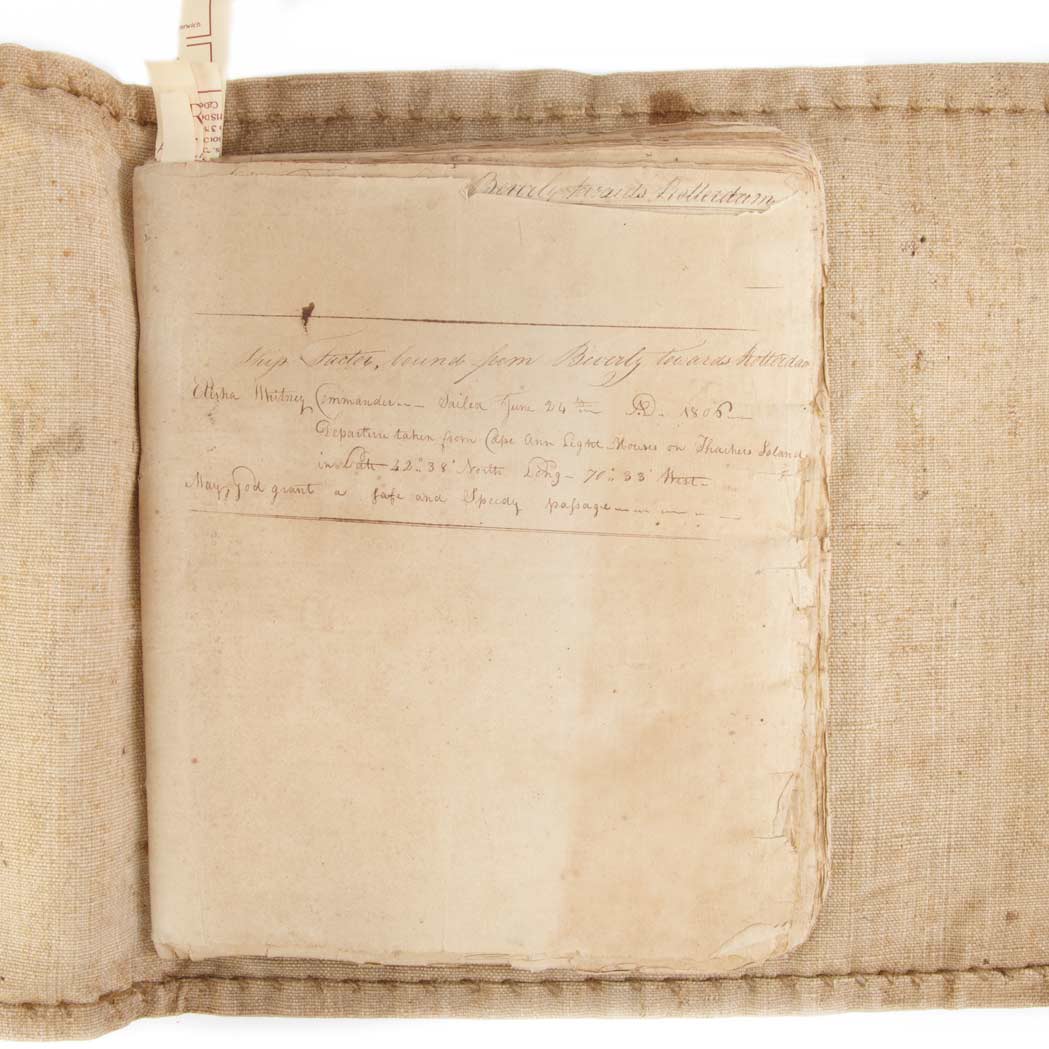 Beverly towards Rotterdam
Ship Factor, bound from Beverly towards Rotterdam
Elisha Whitney Commander - - Sailed June 24th AD. 1806 -
Departure taken from Cape Ann Light Houses on Thachers Island
in Latt 42°: 38' North Long - 70°: 33' West -
May God grant a safe and Speedy passage